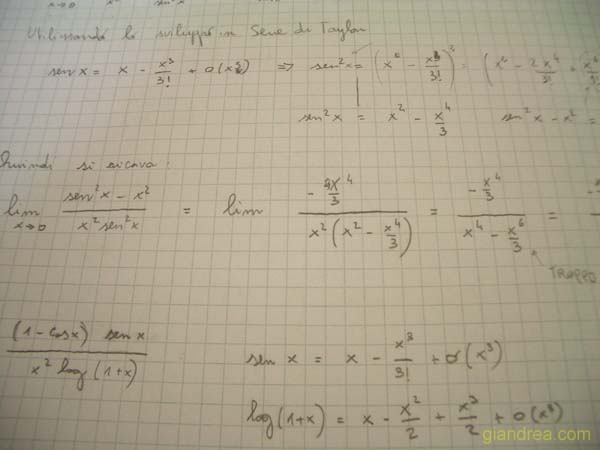 Utilizzando lo sviluppo in Serie di Taylor
sen x = x - x³/3! + o(x³) => sen²x = (x² - x³/3!)² = (x² - 2x⁴/3! + x⁶
sen²x = x² - x⁴/3 sen²x - x² =
Quindi si ricava:
lim x→0 (sen²x - x²)/(x² sen²x) = lim (-x⁴/3)/(x²(x² - x⁴/3)) = (-x⁴/3)/(x⁴ - x⁶/3) =
TROPPO
((1 - cos x) sen x)/(x² log(1+x)) sen x = x - x³/3! + o(x³)
log(1+x) = x - x²/2 + x³/2 + o(x³)
giandrea.com